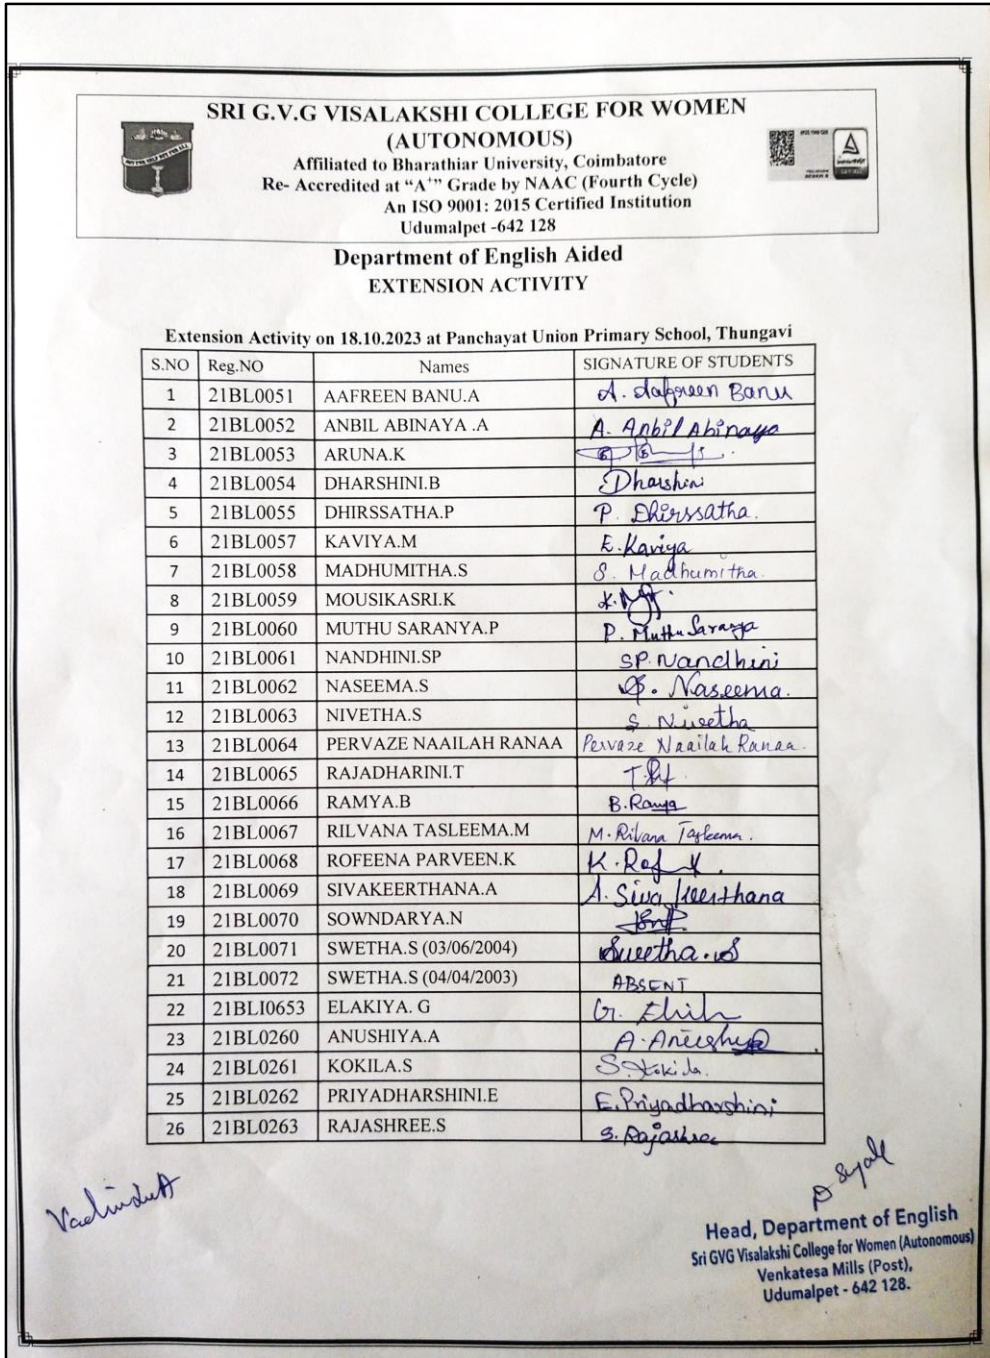 SRI G.V.G VISALAKSHI COLLEGE FOR WOMEN
(AUTONOMOUS)
Affiliated to Bharathiar University, Coimbatore
Re- Accredited at “A⁺” Grade by NAAC (Fourth Cycle)
An ISO 9001: 2015 Certified Institution
Udumalpet -642 128
Department of English Aided
EXTENSION ACTIVITY
Extension Activity on 18.10.2023 at Panchayat Union Primary School, Thungavi
S.NO Reg.NO Names SIGNATURE OF STUDENTS
1 21BL0051 AAFREEN BANU.A A. Aafreen Banu
2 21BL0052 ANBIL ABINAYA .A A. Anbil Abinaya
3 21BL0053 ARUNA.K
4 21BL0054 DHARSHINI.B Dharshini
5 21BL0055 DHIRSSATHA.P P. Dhirssatha.
6 21BL0057 KAVIYA.M E.Kaviya
7 21BL0058 MADHUMITHA.S S. Madhumitha.
8 21BL0059 MOUSIKASRI.K
9 21BL0060 MUTHU SARANYA.P P. Muthu Saranya
10 21BL0061 NANDHINI.SP SP.Nandhini
11 21BL0062 NASEEMA.S S. Naseema.
12 21BL0063 NIVETHA.S S. Nivetha
13 21BL0064 PERVAZE NAAILAH RANAA Pervaze Naailah Ranaa.
14 21BL0065 RAJADHARINI.T
15 21BL0066 RAMYA.B B.Ramya
16 21BL0067 RILVANA TASLEEMA.M M. Rilvana Tasleema.
17 21BL0068 ROFEENA PARVEEN.K
18 21BL0069 SIVAKEERTHANA.A A. Siva Keerthana
19 21BL0070 SOWNDARYA.N
20 21BL0071 SWETHA.S (03/06/2004) Swetha.S
21 21BL0072 SWETHA.S (04/04/2003) ABSENT
22 21BLI0653 ELAKIYA. G
23 21BL0260 ANUSHIYA.A
24 21BL0261 KOKILA.S S. Kokila.
25 21BL0262 PRIYADHARSHINI.E E.Priyadharshini
26 21BL0263 RAJASHREE.S S. Rajashree
Head, Department of English
Sri GVG Visalakshi College for Women (Autonomous)
Venkatesa Mills (Post),
Udumalpet - 642 128.